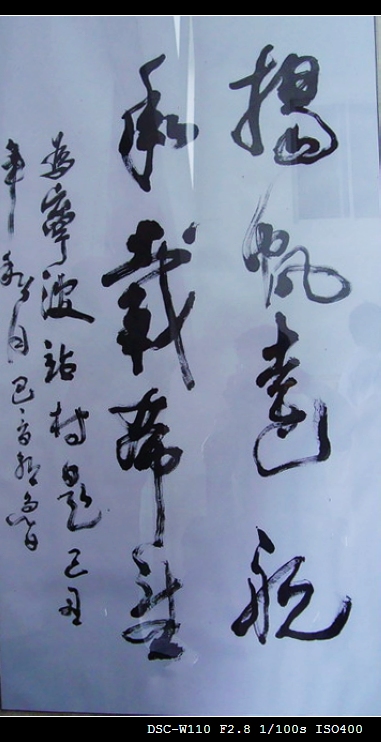 揚帆遠航
承載希望
為寧波站村題 己丑
年秋月
DSC-W110 F2.8 1/100s ISO400